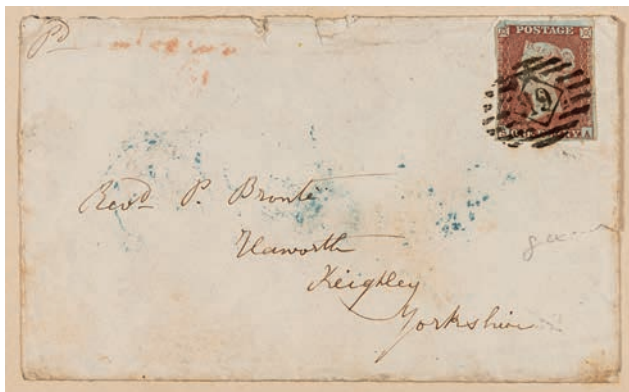 Pd
POSTAGE
19
Revd. P. Bronte
Haworth
Keighley
Yorkshire